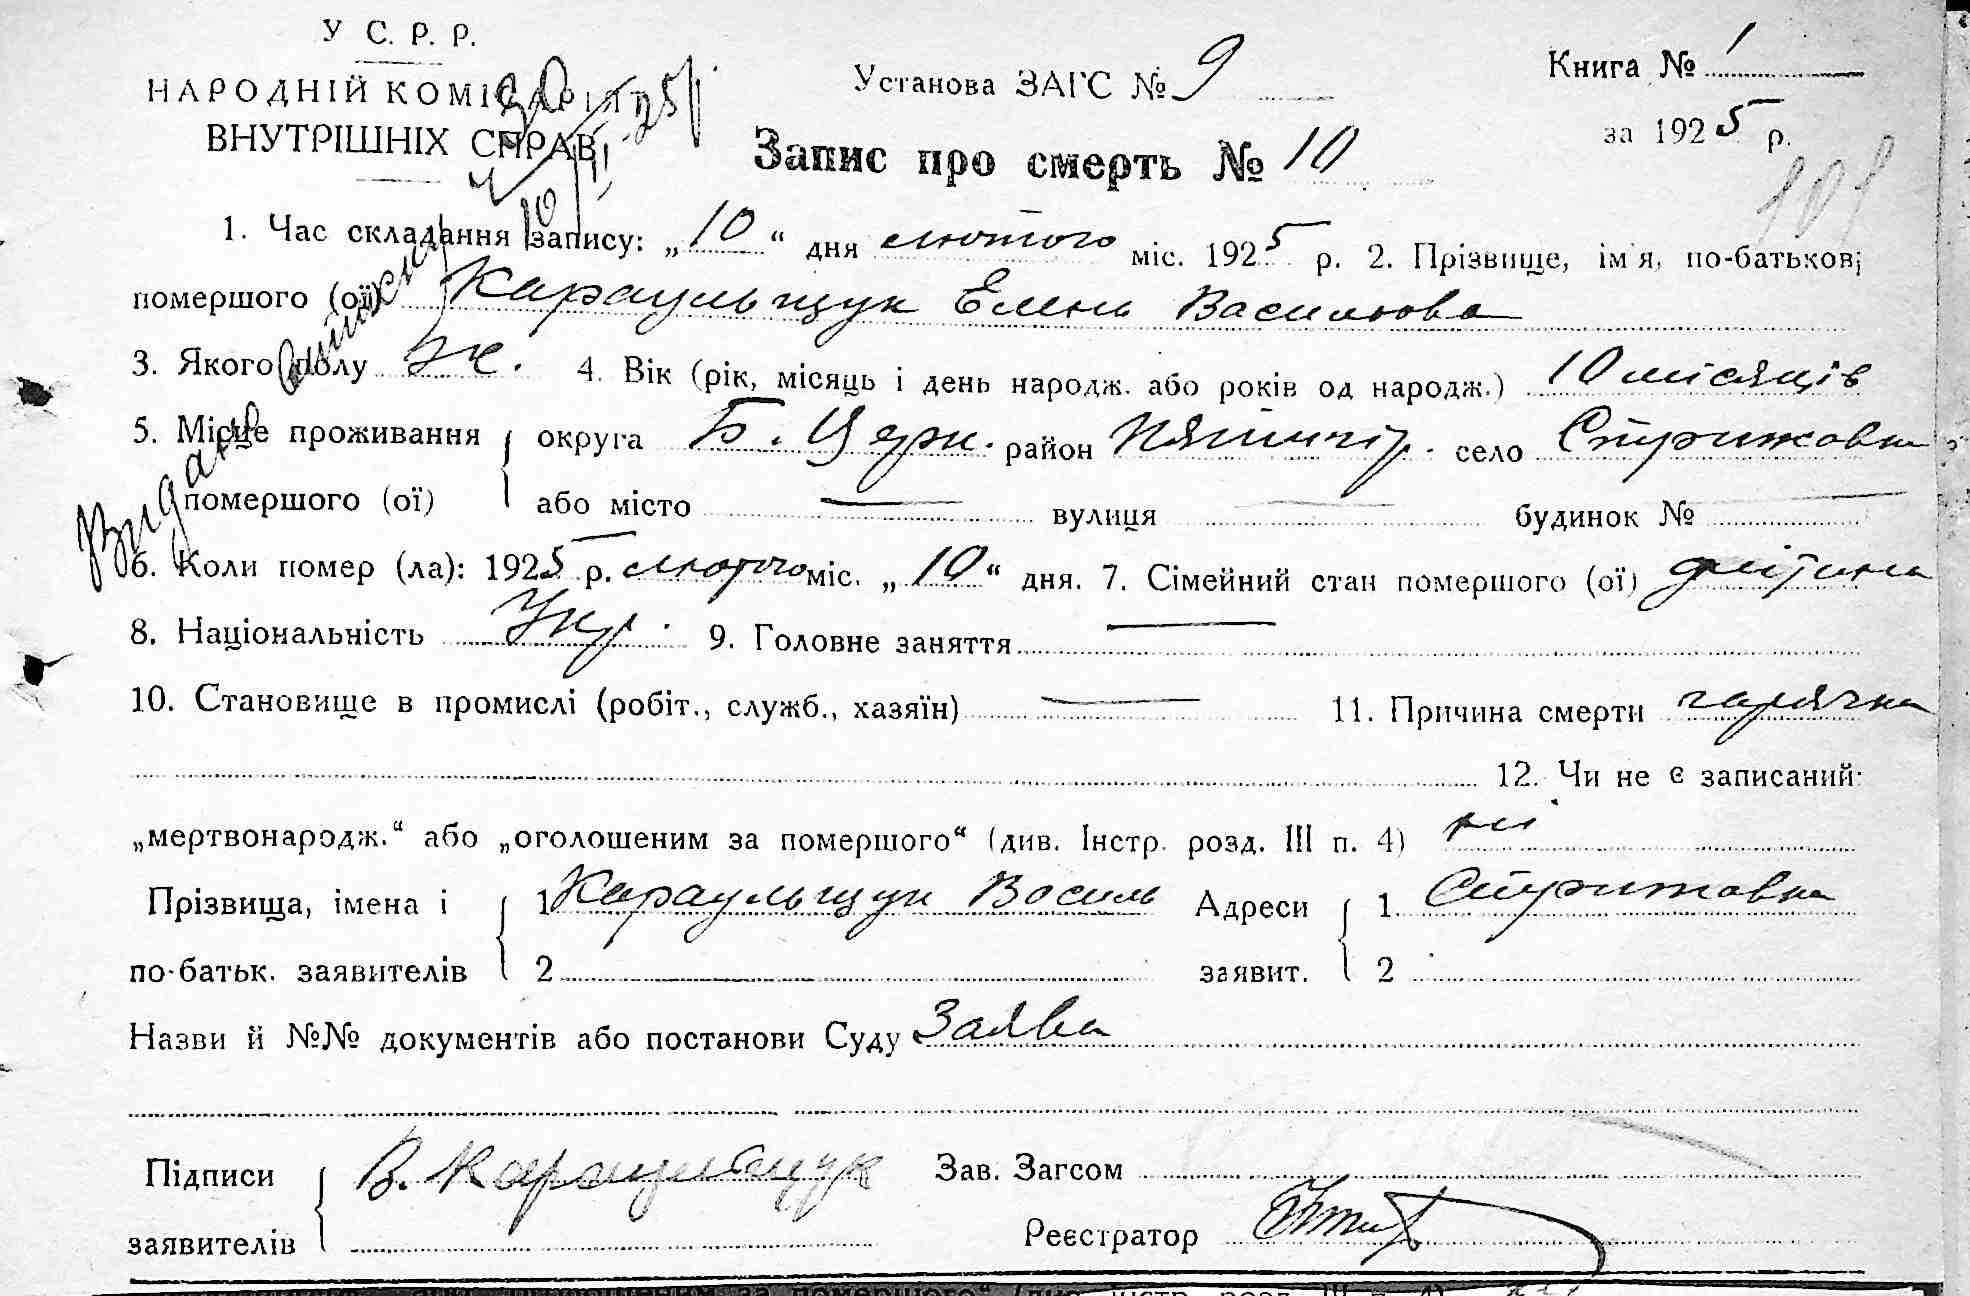 У С. Р. Р.
НАРОДНІЙ КОМІСАРІЯТ
ВНУТРІШНІХ СПРАВ
Установа ЗАГС № 9
Книга № 1
за 1925 р.
Запис про смерть № 10
101
Видано виписку
ч 30
10/II-25 р.
1. Час складання запису: „10“ дня лютого міс. 1925 р. 2. Прізвище, імя, по-батькові
помершого (ої) Караульщук Елена Васильова
3. Якого полу ж. 4. Вік (рік, місяць і день народж. або років од народж.) 10 місяців
5. Місце проживання округа Б. Церк. район Пятигір. село Стрижовка
помершого (ої) або місто — вулиця — будинок № —
6. Коли помер (ла): 1925 р. лютого міс. „10“ дня. 7. Сімейний стан помершого (ої) дитина
8. Національність Укр. 9. Головне заняття —
10. Становище в промислі (робіт., служб., хазяїн) — 11. Причина смерти гарячка
12. Чи не є записаний:
„мертвонародж.“ або „оголошеним за помершого“ (див. Інстр. розд. III п. 4) ні
Прізвища, імена і 1 Караульщук Василь Адреси 1. Стрижовка
по-батьк. заявителів 2 заявит. 2
Назви й №№ документів або постанови Суду Заява
Підписи В. Караульщук Зав. Загсом
заявителів Реєстратор